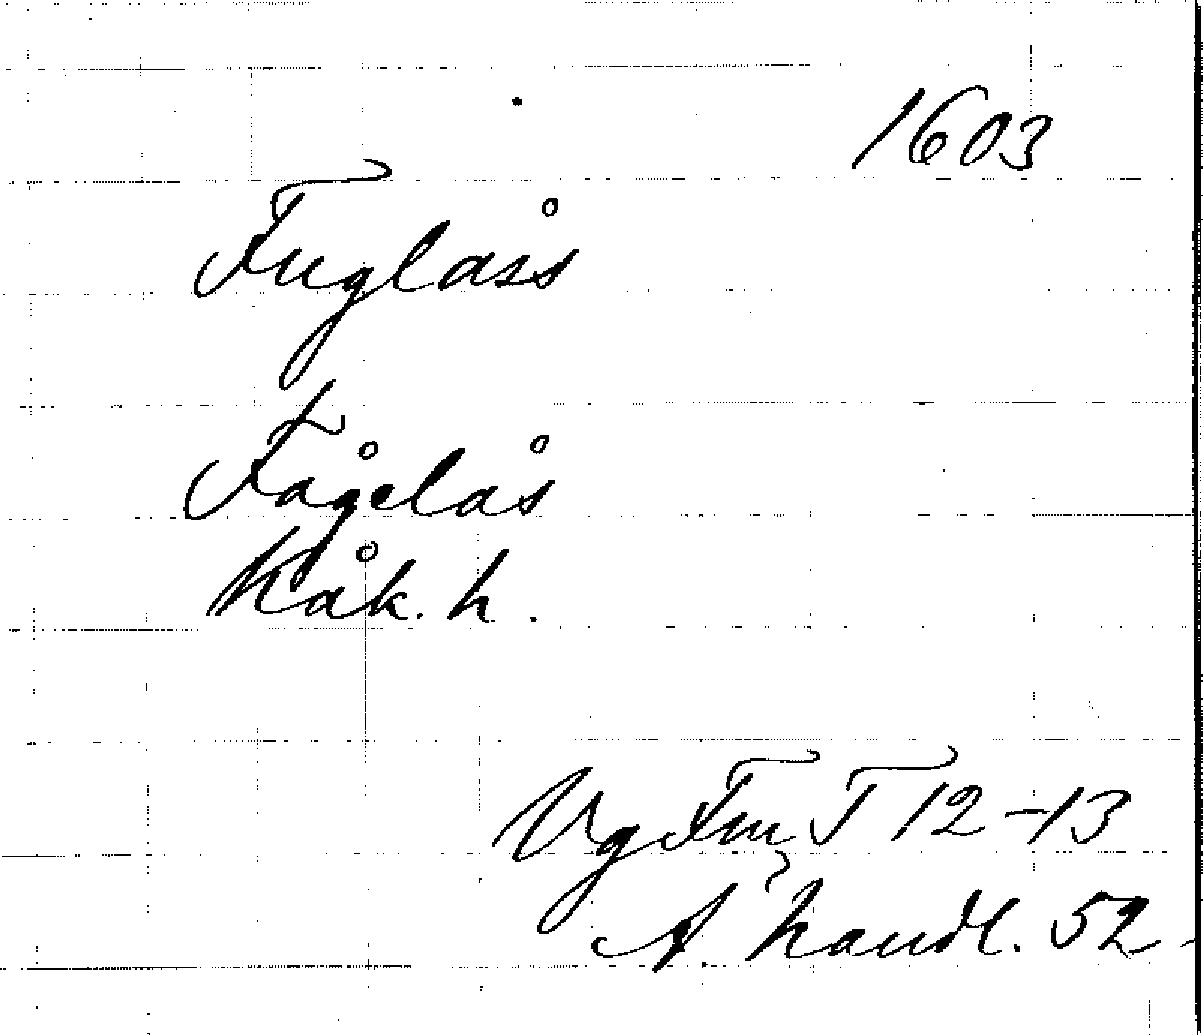 1603
Fuglåss
Fågelås
Kåk. h.
Vg Fm T 12-13
A. handl. 52